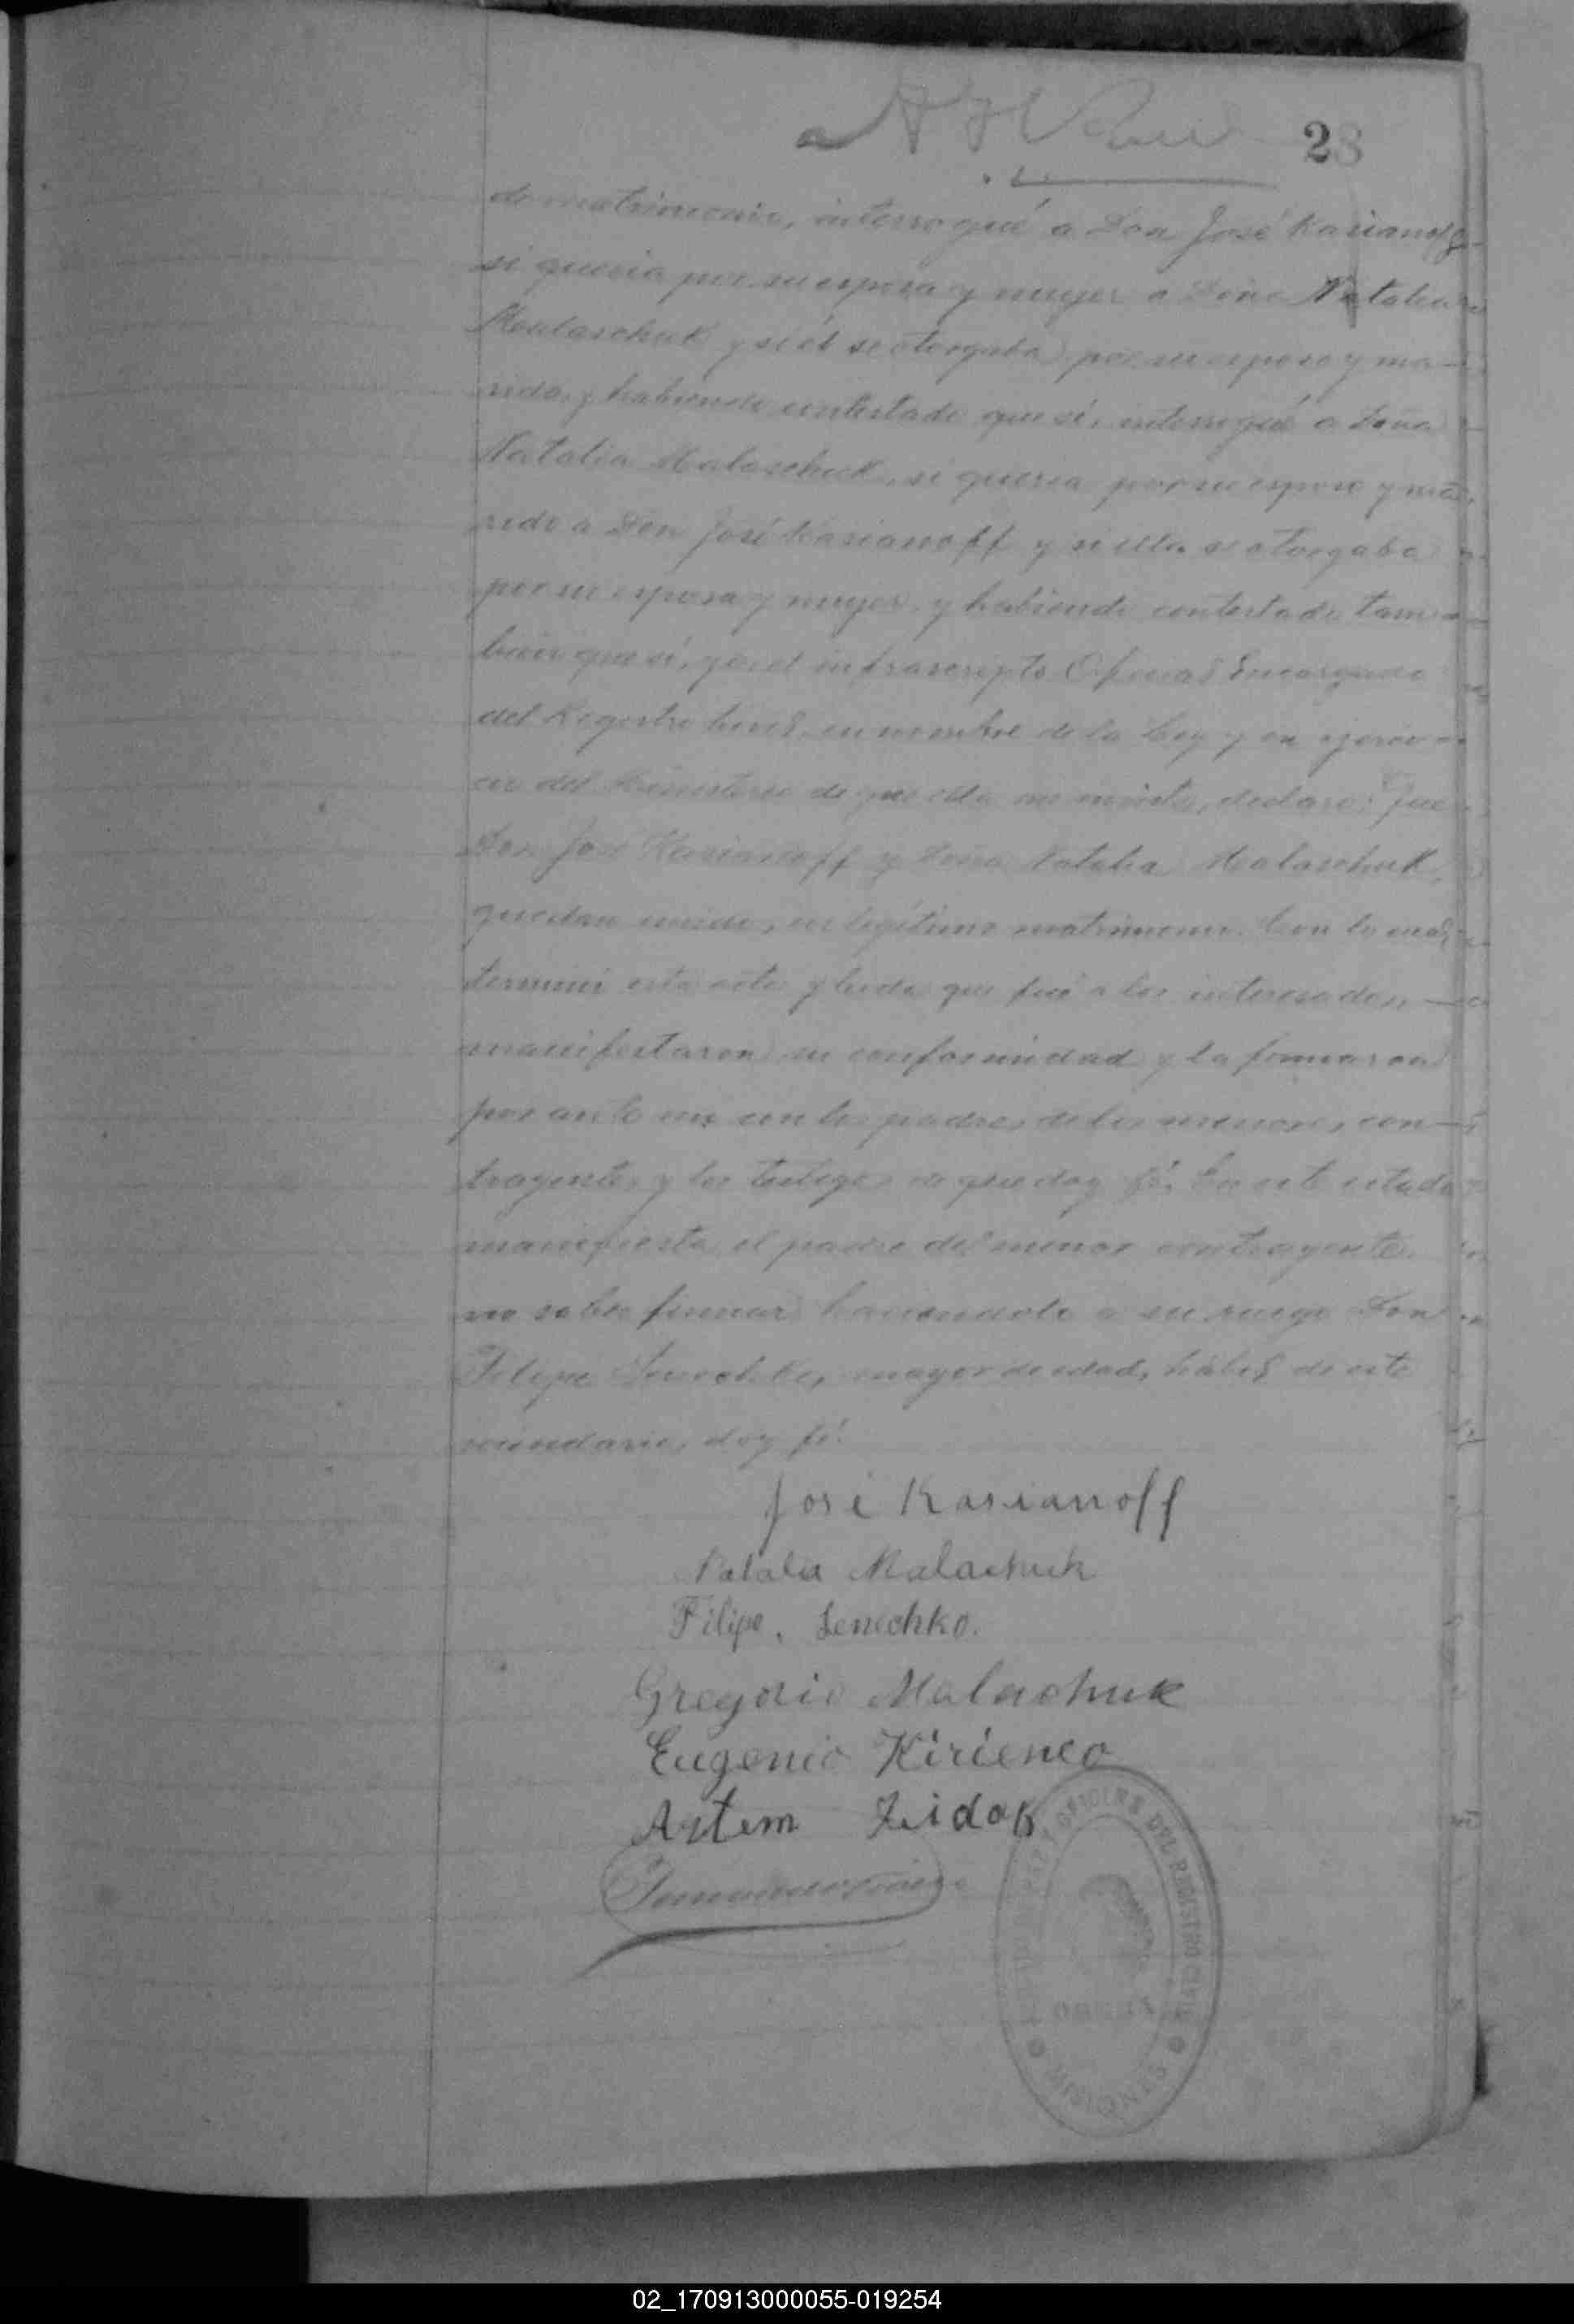 28
de matrimonio, interrogué a Don José Kasianoff
si queria por su esposa y muger a Doña Natalia
Malaschuk y si él se otorgaba por su esposo y ma-
rido, y habiendo contestado que sí, interrogué a Doña
Natalia Malaschuk, si queria por su esposo y ma-
rido a Don José Kasianoff y si ella se otorgaba
por su esposa y muger, y habiendo contestado tam-
bien que sí, yo, el infrascripto Oficial Encargado
del Registro Civil, en nombre de la Ley y en ejerci-
cio del Ministerio de que ella me inviste, declaro: Que
Don José Kasianoff y Doña Natalia Malaschuk,
quedan unidos en legítimo matrimonio. Con lo cual
terminó esta acta y leida que fué a los interesados,
manifestaron su conformidad y la firmaron
por ante mi con los padres de los menores con-
trayentes y los testigos de que doy fé. En este estado
manifiesta el padre del menor contrayente
no saber firmar haciendolo a su ruego Don
Filipo Senechko, mayor de edad, hábil de este
vecindario, doy fé.
José Kasianoff
Natalia Malachuk
Filipo. Senechko.
Gregorio Malachuk
Eugenio Kirienco
Artem Zidak
OFICINA DEL REGISTRO CIVIL
OBERÁ
MISIONES
02_170913000055-019254